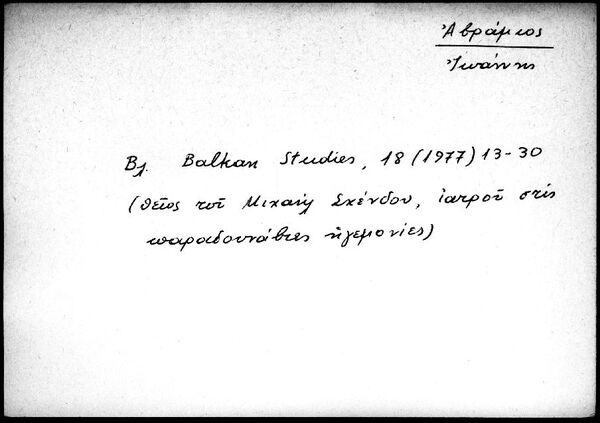 Ἀβράμιος
Ἰωάννης
Βλ. Balkan Studies, 18 (1977) 13-30
(θεῖος τοῦ Μιχαήλ Σκένδου, ἰατροῦ στίς
παραδουνάβιες ἡγεμονίες)